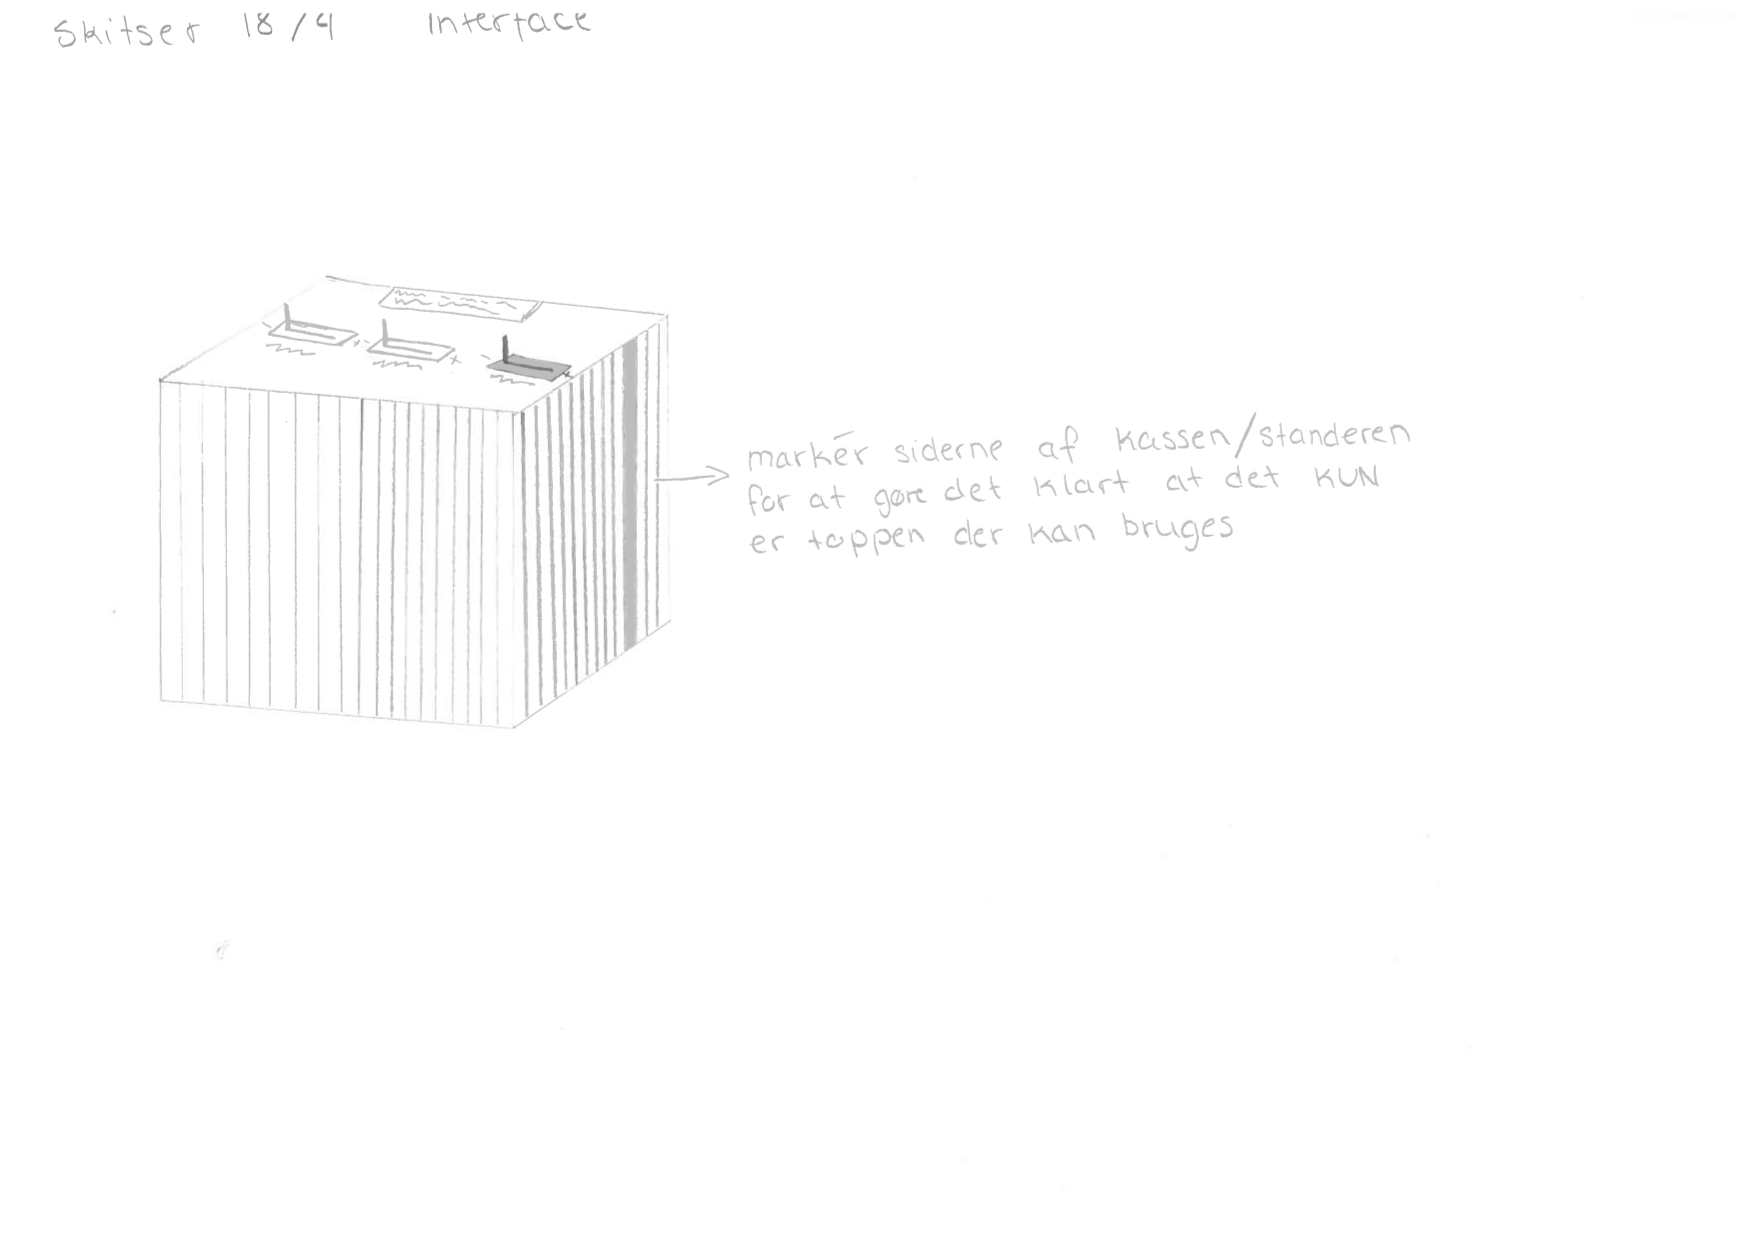 Skitser 18/4 Interface
markér siderne af kassen/standeren
for at gøre det klart at det KUN
er toppen der kan bruges